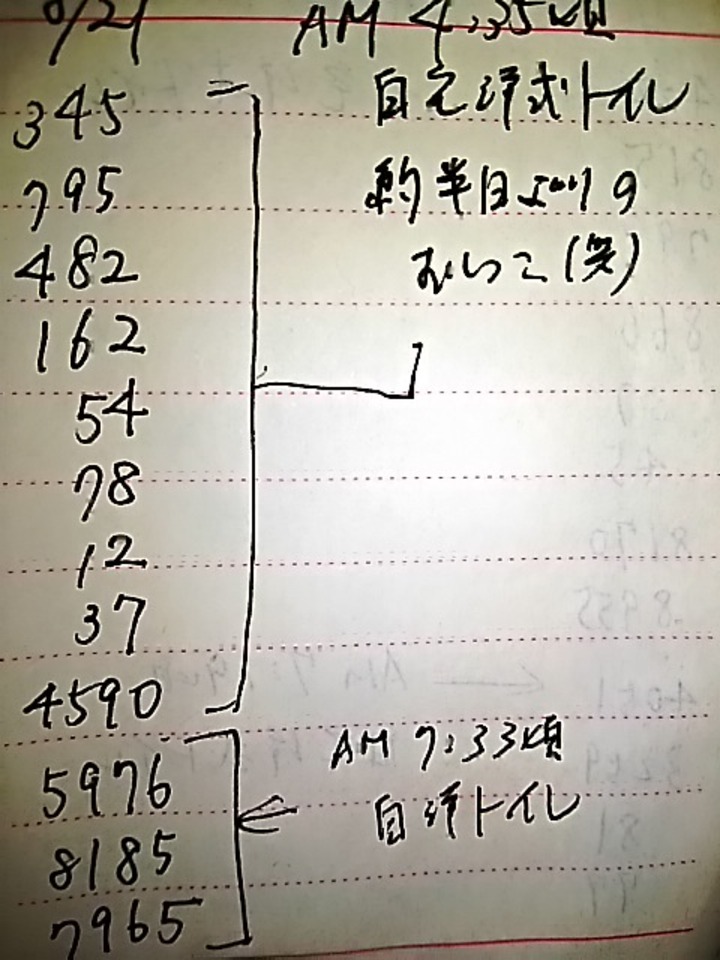 /21 AM 4:35頃
345
自宅洋式トイレ
795
約半日ぶりの
482
おしっこ(笑)
162
54
78
12
37
4590
5976
AM 7:33頃
8185
自洋トイレ
7965